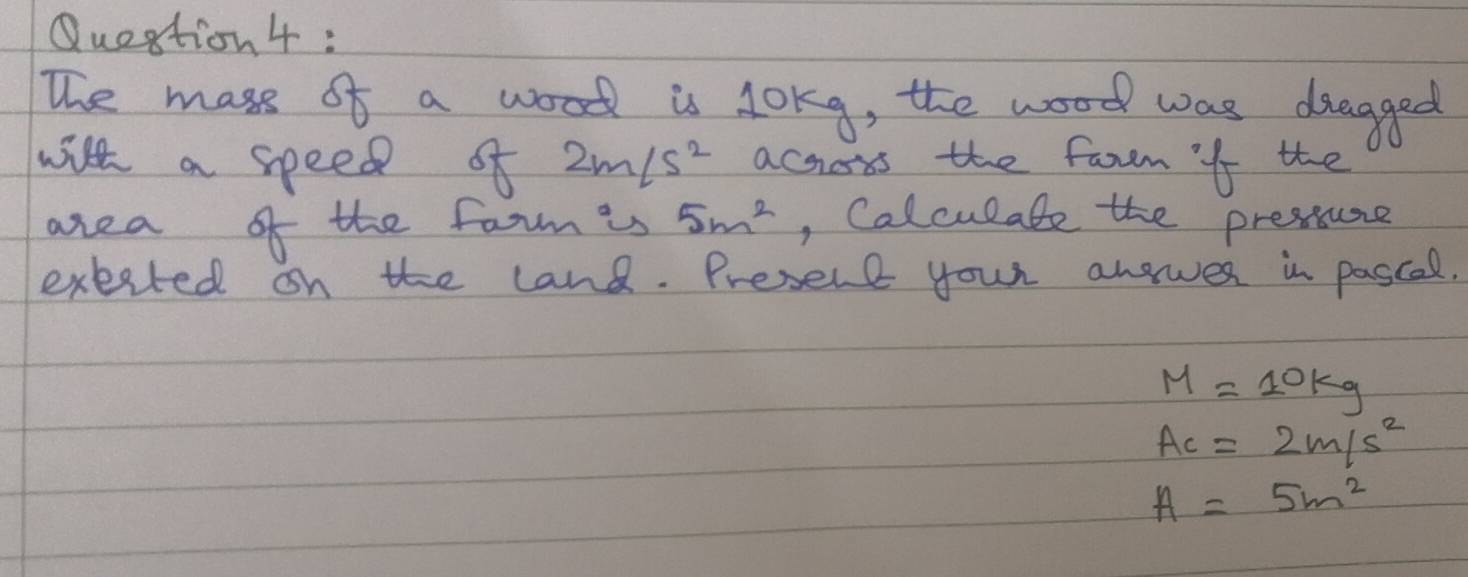 Question 4 :
The mass of a wood is 10Kg, the wood was dragged
with a speed of 2m/s² across the farm if the
area of the farm is 5m², Calculate the pressure
exerted on the land. Present your answer in pascal.
M = 10Kg
Ac = 2m/s²
A = 5m²